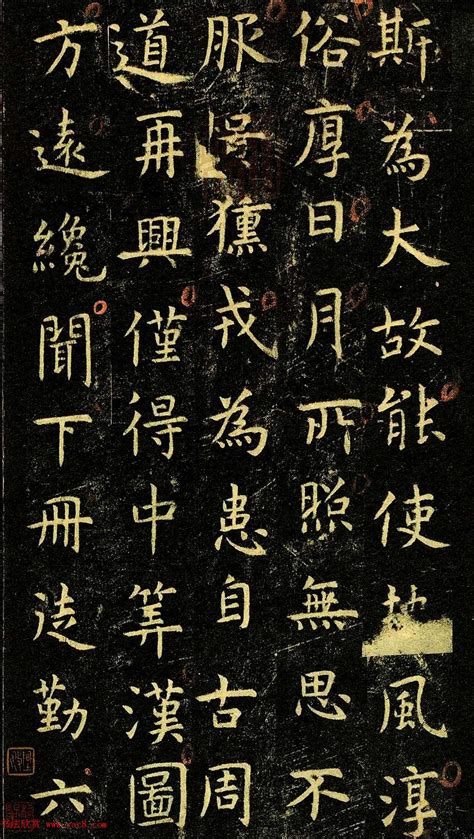 斯為大故能使風淳
俗厚日月所照無思不
服獯戎為患自古周
道再興僅得中筭漢圖
方遠纔聞下冊徒勤六
书法欣赏 www.yac8.com